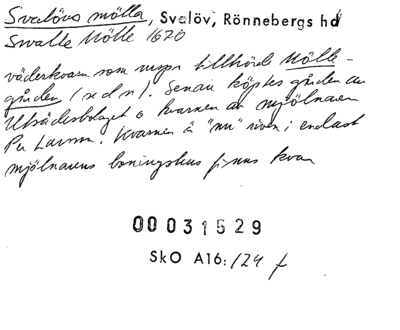 Svalövs mölla, Svalöv, Rönnebergs hd
Svalte Mölle 1620
väderkvarn som ungn tillhörde Mölle-
gården (xdn). Senare köptes gården av
Utsädesbolaget o kvarnen av mjölnaren
Per Larsson. Kvarnen är "nu" riven; endast
mjölnarens boningshus finns kvar
00031529
SkO A16:124 f